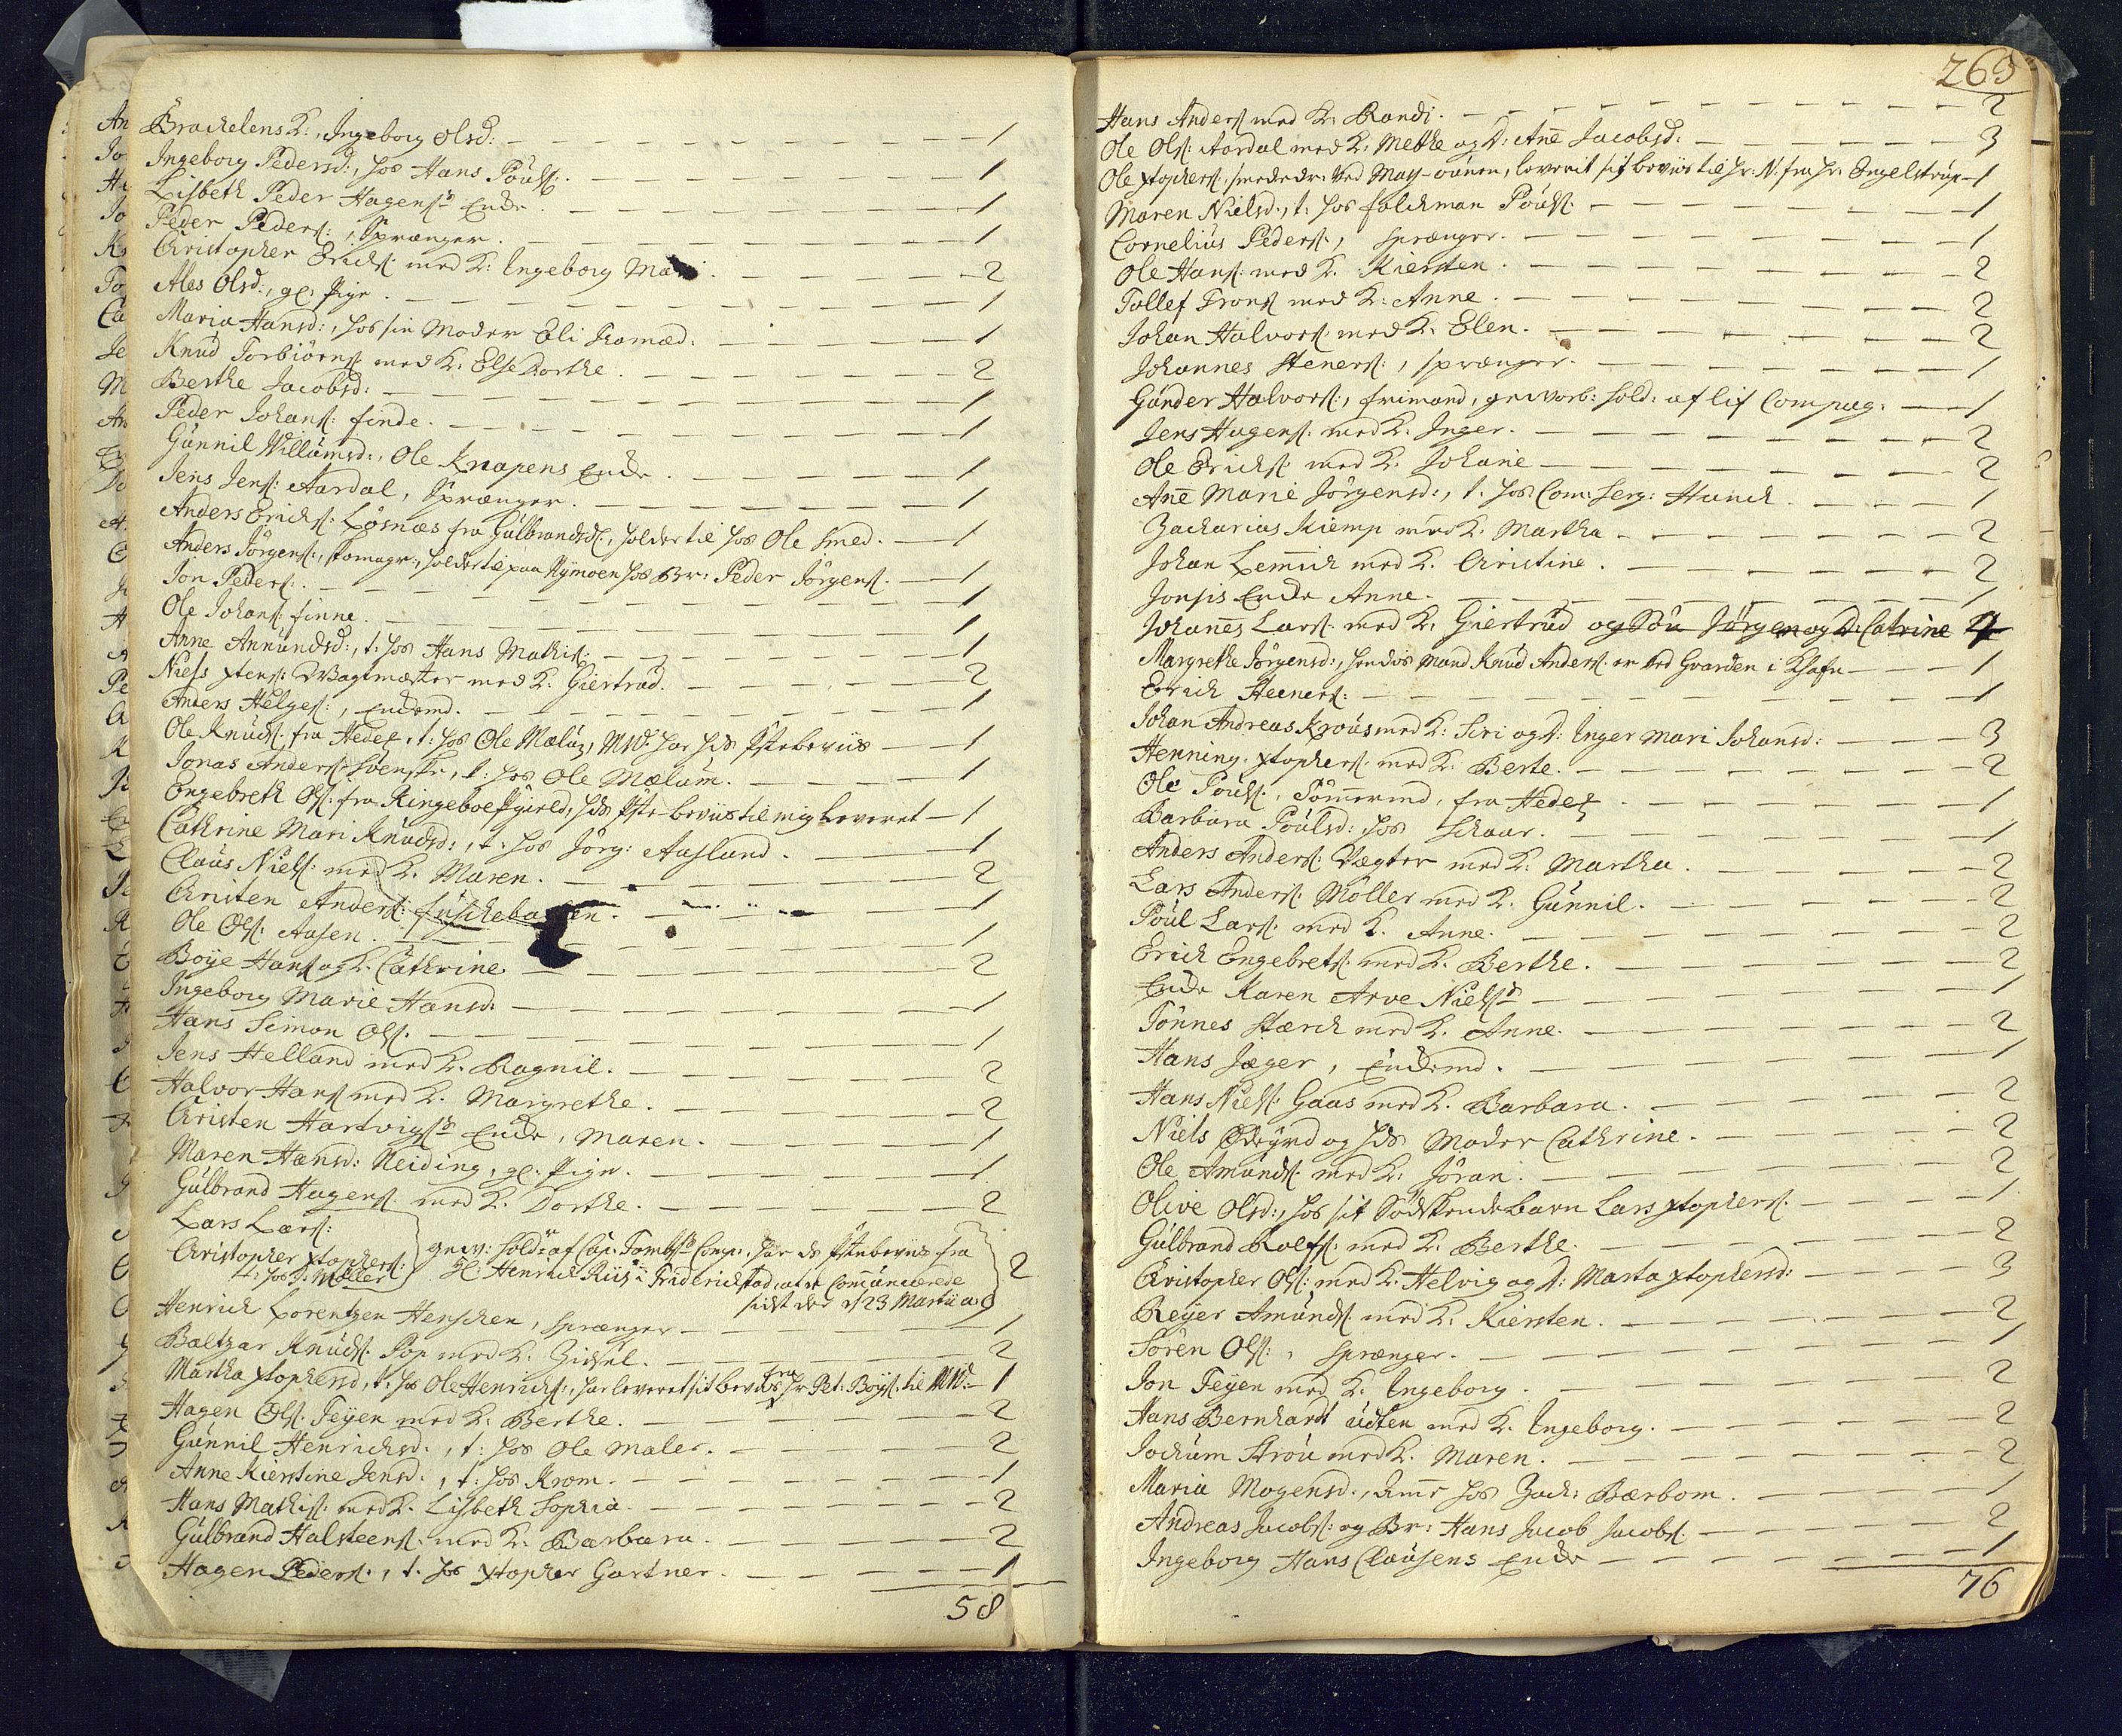 Brachelens K:, Ingeborg Olsd: 1
Ingeborg Pedersd:, hos Hans Poüls: 1
Lisbeth Peder Hagens: Encke 1
Peder Peders:, Sprænger 1
Christopher Erichs: med K: Ingeborg Mari 2
Ales Olsd:, gl: Pige 1
Maria Hansd:, hos sin Moder Eli Tromæd: 1
Knüd Torbiörns: med K: Else Dorthe 2
Berthe Jacobsd: 1
Peder Johans: finde 1
Günnil Willümsd:, Ole Knapens Encke 1
Jens Jens: Aardal, Sprænger 1
Anders Erichs: Lösnæs fra Gülbrandsd:, holder til hos Ole Smed 1
Anders Jörgens:, skomager, holder til paa Nÿmoen hos Br: Peder Jörgens: 1
Jon Peders: 1
Ole Johans: finne 1
Anne Amündsd:, t: hos Hans Mathis: 1
Niels Xtens: Wagtmæster med K: Giertrüd 2
Anders Helges:, Enckemd. 1
Ole Knüds: fra Hedem, t: hos Ole Mælüm, 1
Jonas Anders: Svenske, t: hos Ole Mælüm 1
Engebreth Ols: fra Ringeboe Pgield, hds Pste-beviis til mig leveret 1
Cathrine Mari Knüdsd:, t: hos Jörg: Aasland 1
Claüs Niels: med K: Maren 2
Christen Anders: 1
Ole Ols: Aasen 1
Boÿe Hans: og K: Cathrine 2
Ingeborg Marie Hansd: 1
Hans Simon Ols: 1
Jens Helland med K: Ragnil 2
Halvor Hans: med K: Margrethe 2
Christen Hartvigs: Encke, Maren 1
Maren Hansd: Neiding, gl: Pige 1
Gülbrand Hagens: med K: Dorthe 2
Lars Lars:
Christopher Xtophers: gew: Sold: af Cap: Tombs: Comp:, har de Pstebeviis fra 2
t: hos J: Møller Hr: Henrich Riis i Friderichstad, at de Com̄unicerede
sidst den 23 Martii a: c:
Henrich Lorentzen Henschen, Sprænger 1
Baltzar Knüds: Pop med K: Zidsel 2
Martha Xtophersd, t: hos Ole Henrichs:, har leveret sit beviis fra Hr Pet: Boÿs: til 1
Hagen Ols: Feÿen med K: Berthe 2
Günnil Henrichsd:, t: hos Ole Maler 2
Anne Kierstine Jensd:, t: hos Krom 1
Hans Mathis: med K: Lisbeth Sophia 2
Gülbrand Halsteens: med K: Barbara 2
Hagen Peders:, t: hos Xtopher Gartner 1
58
263
Hans Anders: med K: Randi 2
Ole Ols: Aardal med K: Methe og D: Añe Jacobsd: 3
Ole Xtophers:, smededr: ved May-ovnen, leverit sit beviis til Hr: N: fra Hr: Engelstrüp 1
Maren Nielsd:, t: hos Falchman Poüls: 1
Cornelius Peders:, Sprænger 1
Ole Hans: med K: Kiersten 2
Tollef Trons: med K: Anne 2
Johan Halvors: med K: Elen 2
Johannes Steners:, sprænger 1
Günder Halvors:, frimand, geworb: Sold: af Lif Compag: 1
Jens Hagens: med K: Inger 2
Ole Erichs: med K: Johañe 2
Añe Marie Jörgensd:, t: hos Com: Serg: Hanch 1
Zacharias Kiemp med K: Martha 2
Johan Lem̄ich med K: Christine 2
Jonsis Encke Anne 1
Johañes Lars: med K: Giertrüd og Sön Jörgen og D: Catrine 4
Margrethe Jörgensd:, hendes Mand Knüd Anders: er ved Gvarden i Khafn 1
Erich Steeners: 1
Johan Andreas Kroüs med K: Siri og D: Inger Mari Johansd: 3
Henning Xtophers: med K: Berte 2
Ole Poüls:, Tömmermd, fra Hedem 1
Barbara Poülsd: hos Schaar 1
Anders Anders: Vægter med K: Martha 2
Lars Anders: Möller med K: Günnil 2
Poül Lars: med K: Anne 2
Erich Engebrets: med K: Berthe 2
Encke Karen Arve Niels: 1
Tönnes Stærch med K: Anne 2
Hans Jæger, Enckemd 1
Hans Niels: Gaas med K: Barbara 2
Niels og hds Moder Cathrine 2
Ole Amünds: med K: Jöran 2
Olive Olsd:, hos sit Södskendebarn Lars Xtophers: 1
Gülbrand Rolfs: med K: Berthe 2
Christopher Ols: med K: Helvig og D: Marta Xtophersd: 3
Reÿer Amünds: med K: Kiersten 2
Sören Ols:, Sprænger 1
Jon Feÿen med K: Ingeborg 2
Hans Bernhardt üdten med K: Ingeborg 2
Jochüm Stroü med K: Maren 2
Maria Mogensd:, Am̄e hos Zach: Bærbom 1
Andreas Jacobs: og Br: Hans Jacob Jacobs: 2
Ingeborg Hans Claüsens Encke 1
76